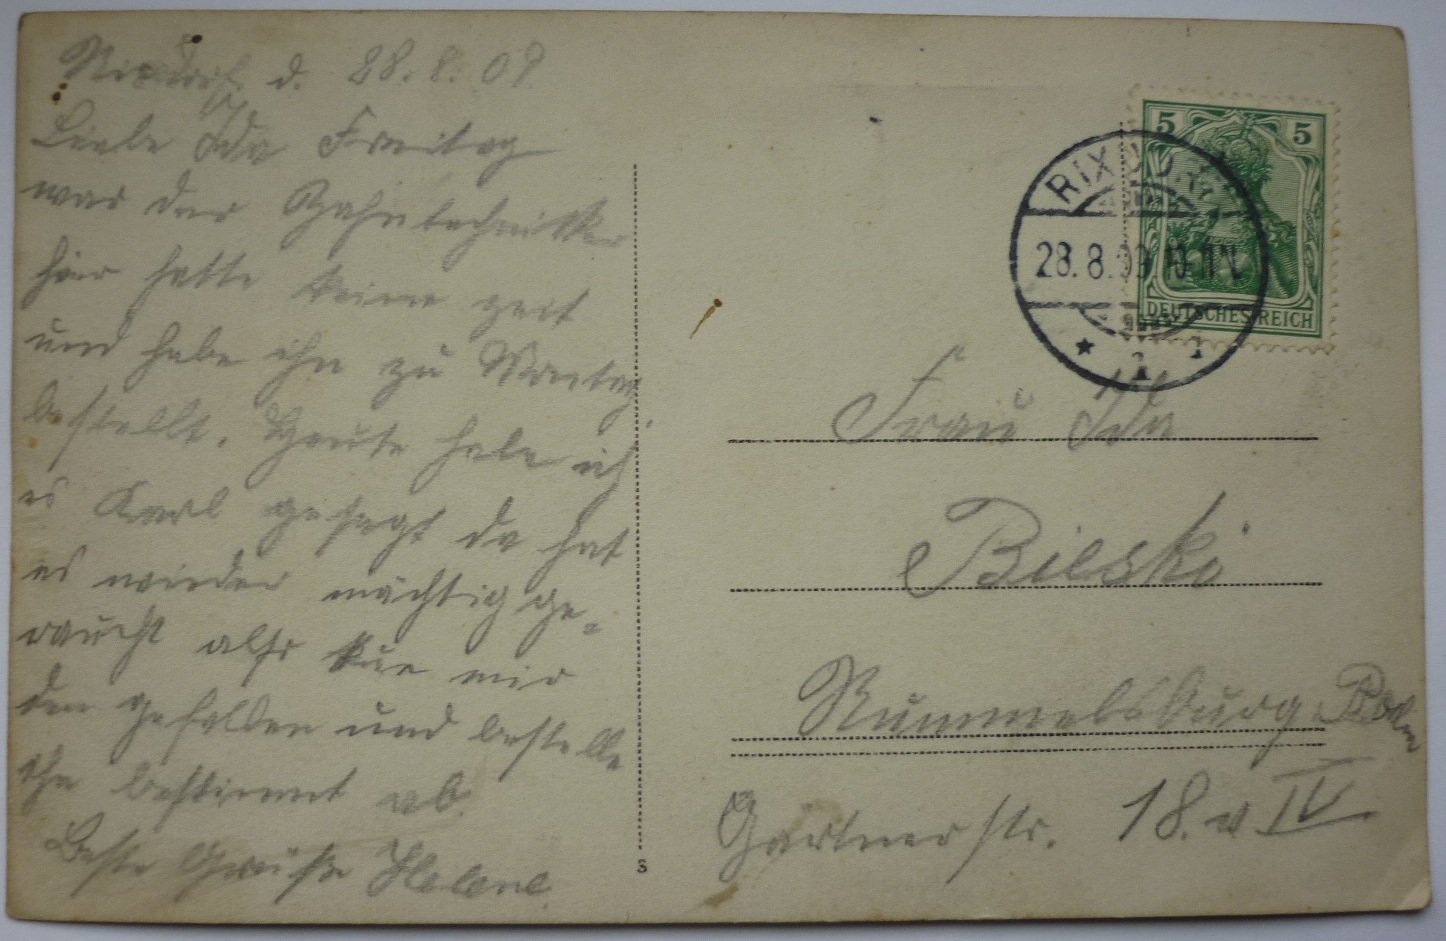 Rixdorf d. 28.8.09.
Liebe Ida Freitag
war der Zahntechnicker
hier hatte keine zeit
und habe ihn zu Montag
bestellt. Heute habe ich
es Karl gesagt da hat
es wieder mächtig ge-
raucht also tue mir
den gefallen und bestelle
ihn bestimmt ab.
Beste Grüße Helene.
5 5
DEUTSCHES REICH
RIXDORF
28.8.09 10-11V.
* 1 1
Frau Ida
Bielski
Rummelsburg
Gartnerstr. 18. v IV.
S